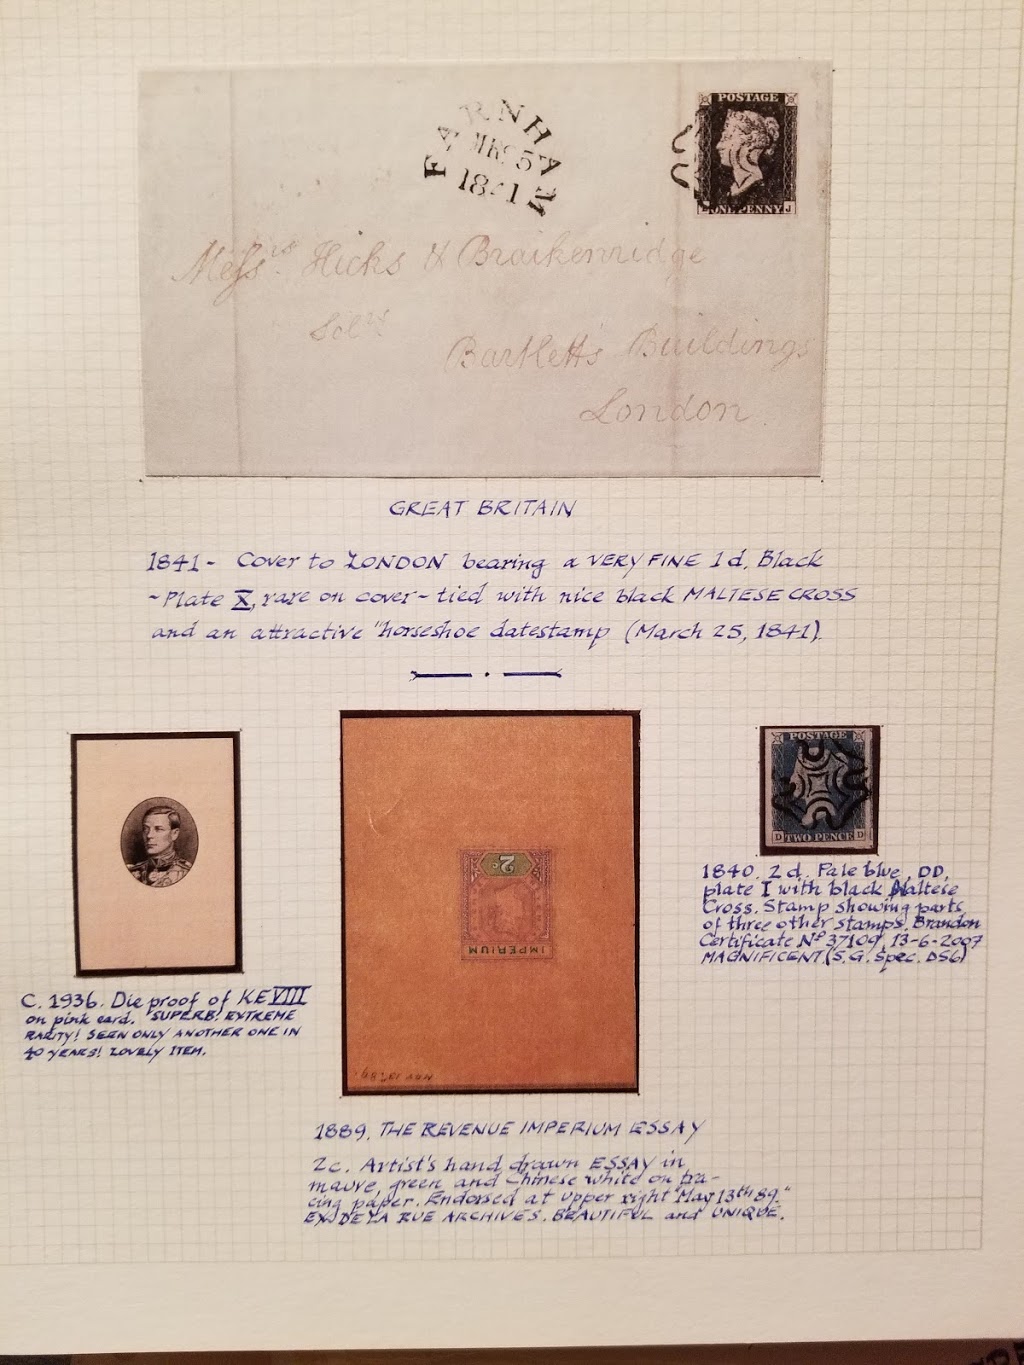 FARNHAM
MR 25
1841
POSTAGE
ONE PENNY J
Messrs. Hicks & Braikenridge
Solrs
Bartlett's Buildings
London
GREAT BRITAIN
1841 - Cover to LONDON bearing a VERY FINE 1d. Black
- Plate X, rare on cover - tied with nice black MALTESE CROSS
and an attractive "horseshoe datestamp (March 25, 1841).
POSTAGE
D TWO PENCE D
2c
IMPERIUM
1840. 2d. Pale blue, DD,
plate I with black Maltese
Cross. Stamp showing parts
of three other stamps. Brandon
Certificate Nº 37109, 13-6-2007
MAGNIFICENT. (S.G. Spec. DS6)
C. 1936. Die proof of KEVIII
on pink card. SUPERB! EXTREME
RARITY! SEEN ONLY ANOTHER ONE IN
40 YEARS! LOVELY ITEM.
1889. THE REVENUE IMPERIUM ESSAY
2c. Artist's hand drawn ESSAY in
mauve, green and Chinese white on tra-
cing paper. Endorsed at upper right "May 13th 89."
EX DE LA RUE ARCHIVES. BEAUTIFUL and UNIQUE.